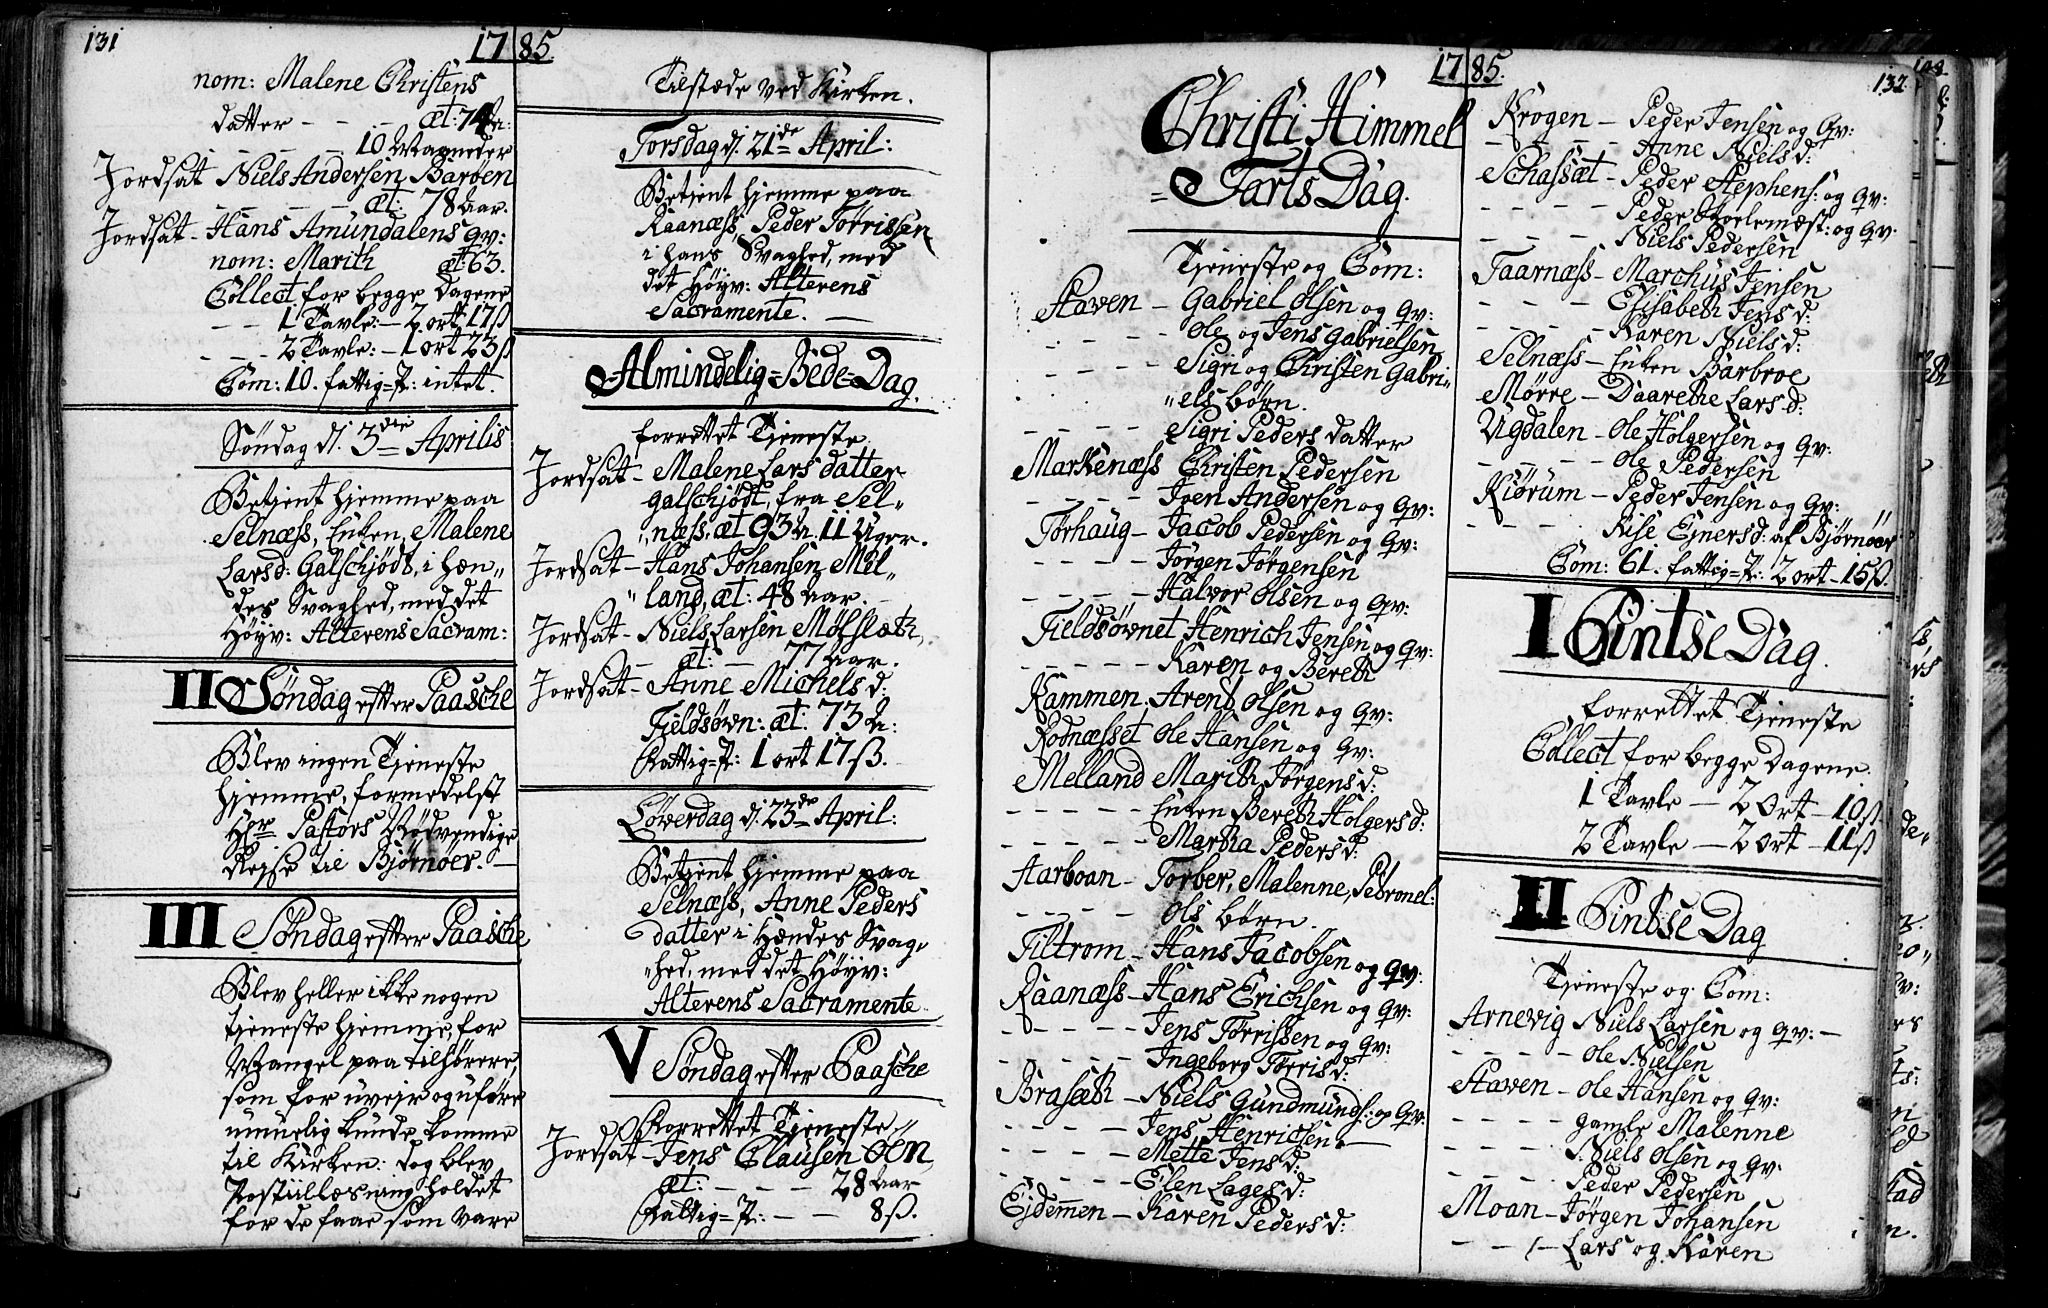 131
17 85.
nom: Malene Christens
datter - - - æt: 74 A:
- - - - - 10 Maaneder
Jordsat Niels Andersen Barben
- - - - - æt: 78 Aar.
Jordsat - Hans Amundalens Qv:
nom: Marith æt: 63.
Collect for begge Dagene
- - 1 Tavle: - 2 ort 17ß
- - - 2 Tavle: - 1 ort 23ß
Com: 10. fattig=P: intet.
Søndag d. 3die Aprilis
Betient hjemme paa
Selnæss, Enken, Malene
Larsd: Galschjødt, i hen„
des Svaghed, med det
Høyv: Alterens Sacram:
II Søndag efter Paasche
Blev ingen Tjeneste
hjemme, formedelst
Hr Pastors Nødvendige
Rejse til Bjørnøer. -
III Søndag efter Paasche
Blev heller ikke nogen
tjeneste hjemme, for
Mangel paa tilhørere,
som for uvejr og uføre
umuelig kunde komme
til Kirken: dog blev
Postillæsning holdet
for de faae som vare
Tilstæde ved Kirken.
Torsdag d. 21de April:
Betient hjemme paa
Raanæss, Peder Tørrissen
i hans Svaghed, med
det Høyv: Alterens
Sacramente. -
Almindelig=Bede=Dag.
forrettet Tjeneste
Jordsat - Malene Lars datter
Galschjødt, fra Sel„
„næss, æt 93 A. 11 Uger.
Jordsat - Hans Johansen Mel„
„land, æt: 48 Aar. -
Jordsat - Niels Larsen Mølslæth,
- æt: - 77 Aar.
Jordsat - Anne Michels d:
Fieldsøwn: æt: 73 A:
Fattig=P: 1 ort 17ß.
Løverdag d. 23de April:
Betient hjemme paa
Selnæss, Anne Peders
datter i Hændes Svag„
„hed, med det Høyv:
Alterens Sacramente.
V Søndag efter Paasche
Forrettet Tjeneste
Jordsat - Jens Clausen Øen,
æt: - - - 28 Aar
Fattig=P: - - 8ß.
17 85.
132.
Christi Himmel
= Farts Dag.
Tjeneste og Com:
Staven - Gabriel Olsen og Qv:
- - - - Ole og Jens Gabrielsen
- - - - Sigri og Christen Gabri„
„els børn.
- - - - Sigri Peders datter
Markenæss Christen Pedersen
- - - - Iven Andersen og Qv:
Torhaug - Jacob Pedersen og Qv:
- - - - Jørgen Jørgensen
- - - - Halvor Olsen og Qv:
Fieldsøwnet Henrich Jensen og Qv:
- - - - - Karen og Bereth
Kammen. Arent Olsen og Qv:
Rodnæsset Ole Hansen og Qv:
Melland Marith Jørgens d:
- - - - - Enken Bereth Holgers d:
- - - - - Martha Peders d:
Aarboan - Torber, Malenne, Petronel:
- - - - Ols børn.
Tiltrom - Hans Jacobsen og Qv:
Raanæss - Hans Erichsen og Qv:
- - - - - Jens Tørrissen og Qv:
- - - - - Ingeborg Tørris d:
Brasæth - Niels Gundmunds: og Qv.
- - - - Jens Henrichsen. -
- - - - - Mette Jens d:
- - - - - Elen Lages d:
Ejdemmen - Karen Peders d:
Krogen - Peder Jensen og Qv:
- - - - Anne Niels d:
Schassæt - Peder Stephens: og Qv:
- - - - Peder Skolemæst: og Qv.
- - - - Niels Pedersen
Taarnæss - Marchus Jensen
- - - - Elisabeth Jens d:
- - - - Karen Niels d:
Selnæss - Enken Barbroe
Mørre - Daarethe Lars d:
Ugdalen - Ole Holgersen og Qv:
- - - - Ole Pedersen
Kiørum - Peder Jensen og Qv:
- - - Kise Ejnersd: af Bjørnöer
Com: 61. fattig=P: 2 ort - 15ß.
I Pintse Dag.
forrettet Tjeneste
Collect for begge Dagene.
1 Tavle - 2 Ort - 10ß
2 Tavle - 2 ort - 11ß
II Pintse Dag
Tjeneste og Com:
Arnevig Niels Larsen og Qv: -
- - - - Ole Nielsen
Staven - Ole Hansen og Qv:
- - - - gamle Malenne
- - - - Niels Olsen og Qv.
- - - - Peder Pedersen
Moan - Jørgen Johansen
- - - Lars og Karen